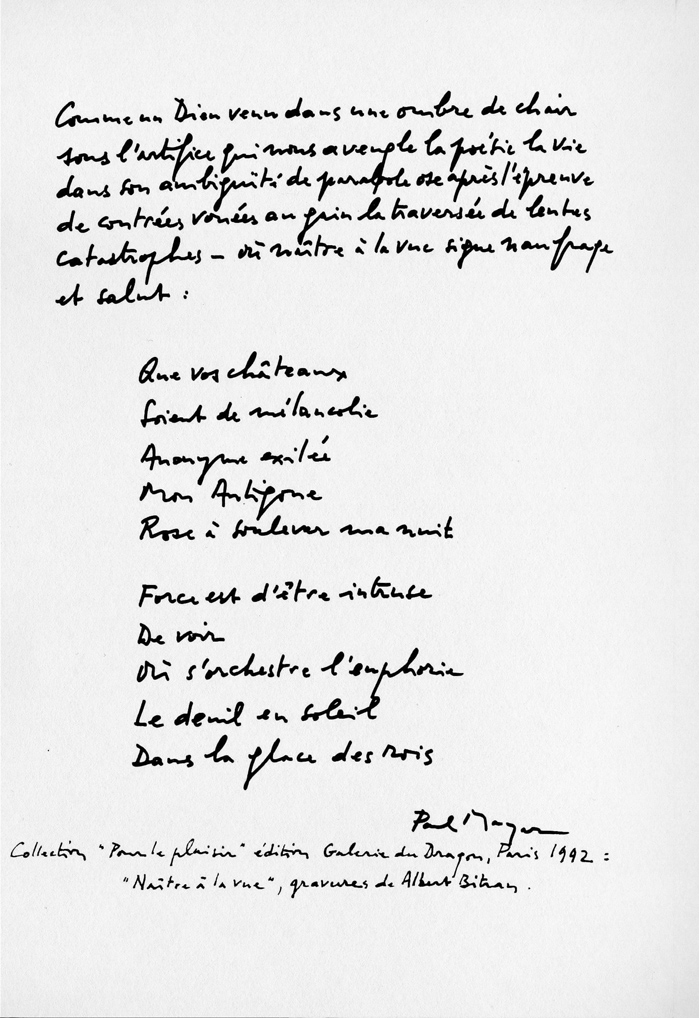 Comme un Dieu venu dans une ombre de chair
sous l'artifice qui nous aveugle la poétic la vie
dans son ambiguïté de parabole ose après l'épreuve
de contrées vouées au grin la traversée de lentes
catastrophes – où naître à la vue signe naufrage
et salut :
Que vos châteaux
Soient de mélancolie
Anonyme exilée
Mon Antigone
Rose à soulever ma nuit
Force est d'être intruse
De voir
Où s'orchestre l'euphorie
Le deuil en soleil
Dans la glace des rois
Paul Mayer
Collection "Pour le plaisir" édition Galerie du Dragon, Paris 1992 :
"Naître à la vue", gravures de Albert Bitran.